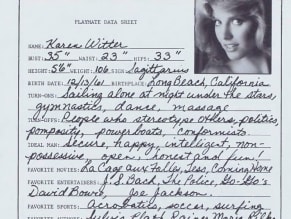 PLAYMATE DATA SHEET
NAME: Karen Witter
BUST: 35" WAIST: 23" HIPS: 33"
HEIGHT: 5'6" WEIGHT: 106 Sagittarius
BIRTH DATE: 12/13/61 BIRTHPLACE: Long Beach, California
TURN-ONS: Sailing alone at night under the stars,
gymnastics, dance, massage
TURN-OFFS: People who stereotype others, politics,
pomposity, powerboats, conformists
IDEAL MAN: Secure, happy, intelligent, non-
possessive, open, honest and fun!
FAVORITE MOVIES: La Cage aux Folles, Tess, Coming Home
FAVORITE ENTERTAINERS: J.S. Bach, The Police, Go-Go's
David Bowie, Joe Jackson
FAVORITE SPORTS: Acrobatics, soccer, surfing
Sylvia Plath, Rainer Maria Rilke